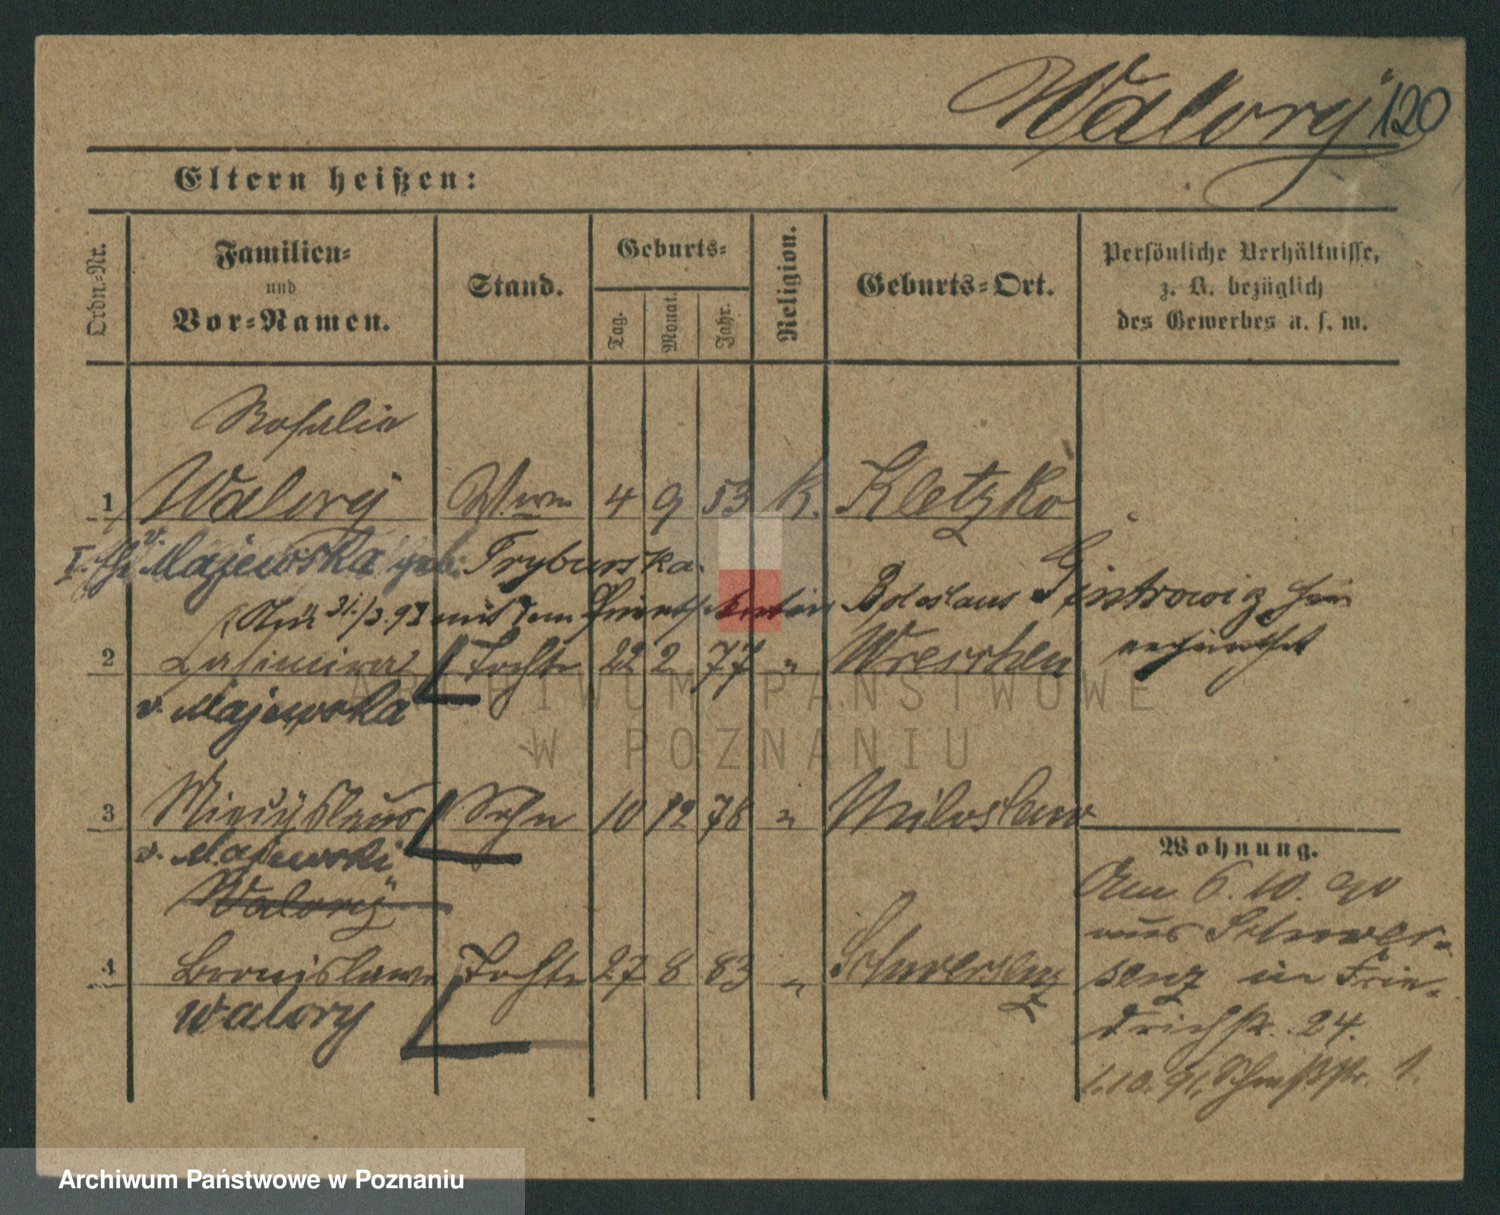 Walory 120
Eltern heißen:
Ordn-Nr.
Familien-
und
Vor-Namen.
Stand.
Geburts-
Tag.
Monat.
Jahr.
Religion.
Geburts-Ort.
Persönliche Verhältnisse,
z. B. bezüglich
des Gewerbes u. s. w.
Rosalie
1 Walory Wwe 4 9 53 K. Kletzko
I. v. Majewska geb. Tryburska.
31./3. 93 mit dem Boleslaus hier
2 Casimira Tochter 22 2 77 " Wreschen
v. Majewska
3 Miecÿslaus Sohn 10 12 78 " Miloslaw
v. Majewski
Walory
4 Bronislawa Tochter 27 8 83 " Schwersenz
Walory
Wohnung.
Am 6. 10. 90
aus Schwer-
senz in Frie-
drichstr. 24.
1.10. 91, 1.
ARCHIWUM PAŃSTWOWE
W POZNANIU
Archiwum Państwowe w Poznaniu